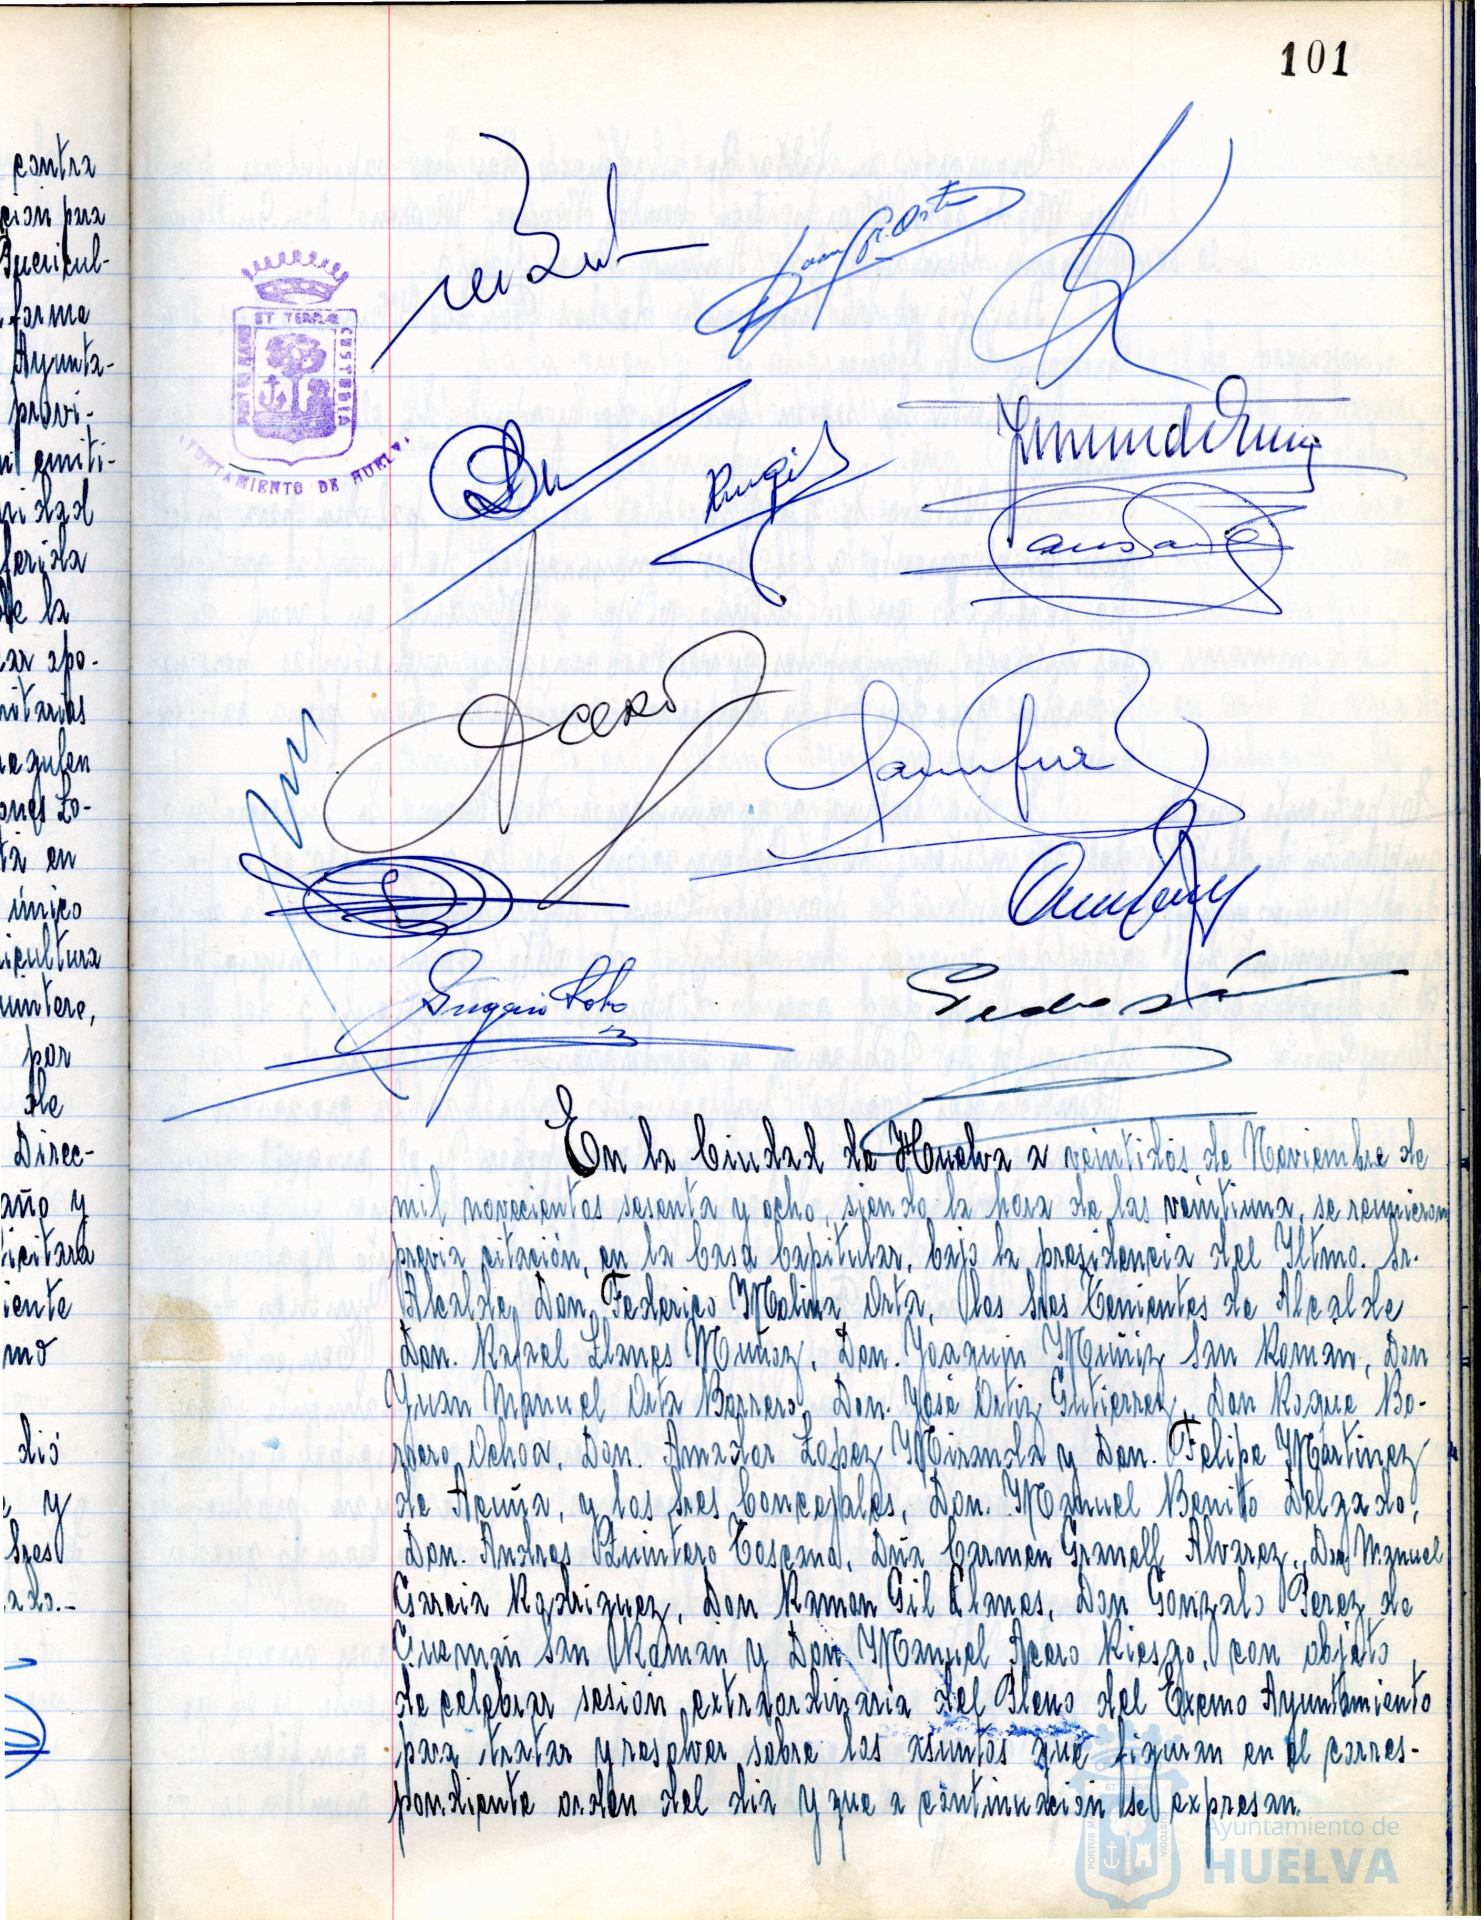 101
contra
ción para
Puericul-
forme
Ayunta-
provi-
emiti-
ridad
ferida
de la
apo-
nitarias
regulen
ones Lo-
ta en
único
icultura
Quintero,
por
de
Direc-
año y
licitara
iente
mo
dió
e y
Sres
PORTUS MARIS
ET TERRAE
CUSTODIA
AYUNTAMIENTO DE HUELVA
Acero
Eugenio
En la Ciudad de Huelva a veintidós de Noviembre de
mil novecientos sesenta y ocho, siendo la hora de las veintiuna, se reunieron
previa citación, en la Casa Capitular, bajo la presidencia del Iltmo. Sr.
Alcalde, Don Federico Molina Orta, los Sres Tenientes de Alcalde
Don. Rafael Llanes Muñoz, Don. Joaquin Muñiz San Roman, Don
Juan Manuel Orta Borrero, Don. José Ortiz Gutierrez, Don Roque Bo-
rrero Ochoa, Don. Amador Lopez Miranda y Don. Felipe Mártinez
de Acuña, y los Sres Concejales, Don. Manuel Benito Delgado,
Don. Andres Quintero Toscano, Dña Carmen Granell Alvarez, Don Manuel
Garcia Rodriguez, Don Ramon Gil Llanes, Don Gonzalo Perez de
Guzmán San Román y Don Manuel Acero Riesgo, con objeto
de celebrar sesión extraordinaria del Pleno del Excmo Ayuntamiento
para tratar y resolver sobre los asuntos que figuran en el corres-
pondiente orden del dia y que a continuación se expresan.
Ayuntamiento de
HUELVA